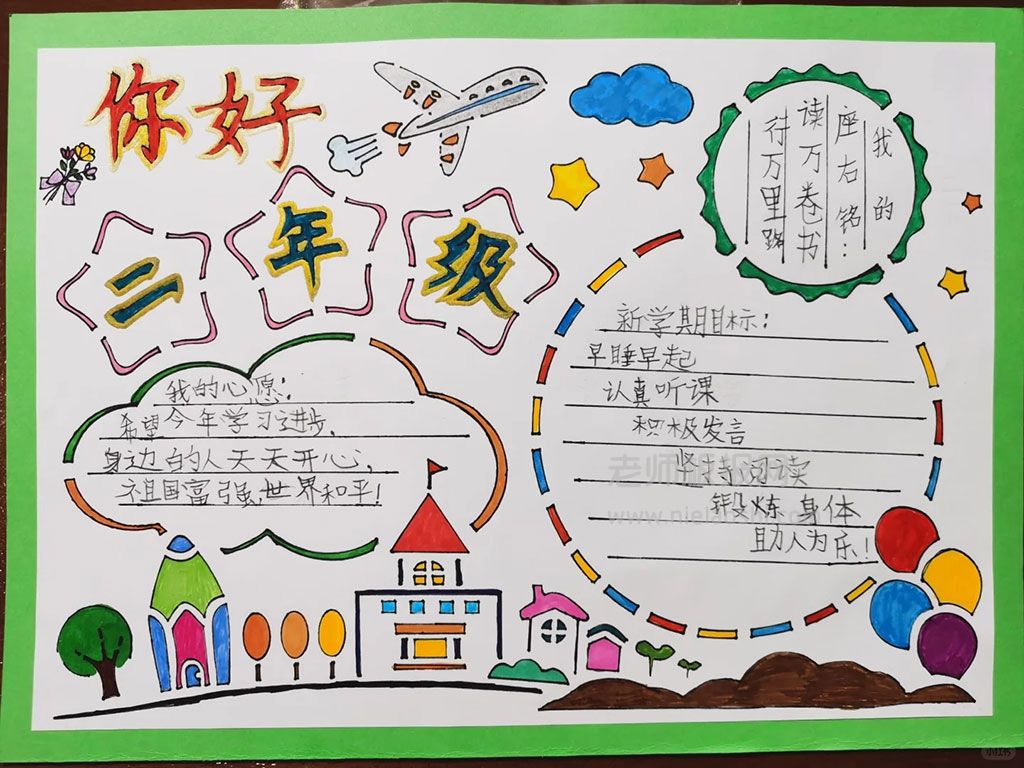 你好
二年级
我的
座右铭：
读万卷书
行万里路
我的心愿：
希望今年学习进步，
身边的人天天开心，
祖国富强，世界和平！
新学期目标：
早睡早起
认真听课
积极发言
坚持阅读
锻炼身体
助人为乐！